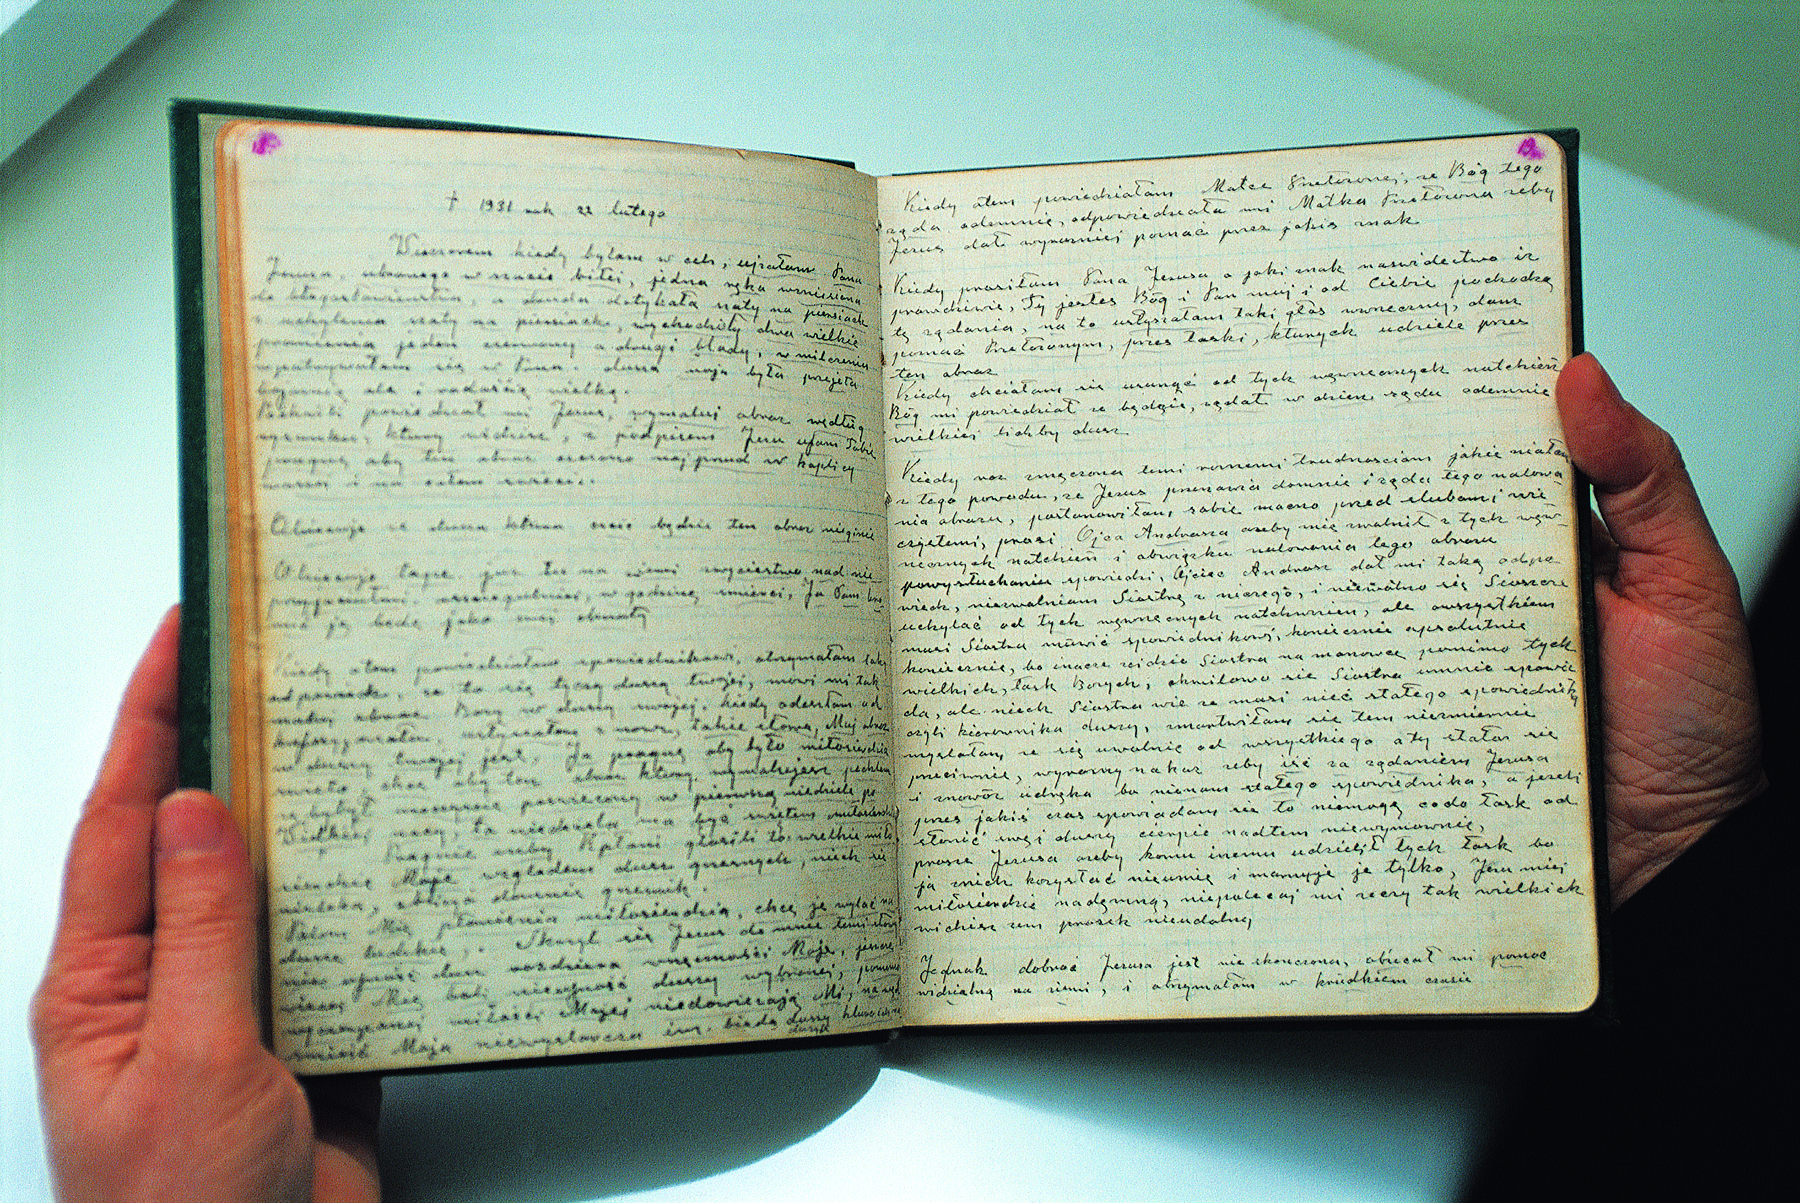 18
† 1931 rok 22 lutego
Wieczorem kiedy byłam w celi, ujrzałam Pana
Jezusa, ubranego w szacie białej, jedna ręka wzniesiona
do błogosławieństwa, a druga dotykała szaty na piersiach
z uchylenia szaty na piersiach, wychodziły dwa wielkie
promienie jeden czerwony a drugi blady, w milczeniu
wpatrywałam się w Pana. dusza moja była przejęta
bojaźnią ale i radością wielką.
Po chwili powiedział mi Jezus, wymaluj obraz według
rysunku, który widzisz, z podpisem Jezu ufam Tobie
pragnę aby ten obraz czczono najprzud w kaplicy
waszej i na całym świecie.
Obiecuję że dusza która czcić będzie ten obraz niezginie
Obiecuję także, już tu na ziemi zwycięstwo nad nie-
przyjaciółmi, szczególniej, w godzinę śmierci, Ja Sam bro
nić ją będę jako swej chwały
Kiedy o tem powiedziałam spowiednikowi, otrzymałam taką
odpowiedz, że to się tyczy duszy twojej, mówi mi tak
maluj obraz Boży w duszy swojej. kiedy odeszłam od
usłyszałam z nowu takie słowa, Mój obraz
w duszy twojej jest. Ja pragnę aby było miłosierdzia
święto, chcę aby ten obraz który wymalujesz pędzlem
żeby był uroczyście poświęcony w pierwszą niedzielę po
Wielkiej nocy, ta niedziela ma być świętem miłosierdzia
Pragnie ażeby Kapłani głosili to wielkie miło
sierdzie Moje względem dusz grzesznych, niech się
nielęka, zbliżyć domnie grzesznik.
Palom Mię płomienia miłosierdzia, chcę je wylać na
dusze ludzkie. Skarżył się Jezus do mnie temi słowy
nieufność dusz rozdziera wnęczności Moje, jeszcze
więcej Mię boli nieufność duszy wybranej, pomimo
niewyczerpanej miłości Mojej niedowierzają Mi, nawet
śmierć Moja niewystarcza im. biada duszy która ich na
19
Kiedy otem powiedziałam Matce Przełorzonej, że Bóg tego
ząda odemnie, odpowiedziała mi Matka Przełorzona żeby
Jezus dał wyrazniej poznać przez jakis znak
Kiedy prosiłam Pana Jezusa o jaki znak naswidectwo iz
prawdziwie, Ty jestes Bóg i Pan muj i od Ciebie pochodzą
tę ządania, na to usłyszałam taki głos wnęczny, dam
poznać Przełorzonym, przez łaski, kturych udziele przez
ten obraz
Kiedy chciałam się usunąć od tych wewnęcznych natchnień
Bóg mi powiedział ze będzie, ządał w dzien sądu odemnie
wielkiej lichby dusz
Kiedy raz zmęczona temi roznemi trudnosciami jakie miałam
z tego powodu, ze Jezus przemawia domnie i ząda tego malowa-
nia obrazu, postanowiłam sobie mocno przed slubami wie
czystemi, prosi Ojca Andrasza azeby mię zwolnił z tych wew-
nęcznych natchień i obwiązku malowania tego obrazu
powysłuchaniu spowiedzi, Ojciec Andrasz dał mi taką odpo
wiedz, niezwalniam Siostrę z niczego, i niewolno się Siostrze
uchylać od tych wewnęcznych natchnien, ale owszystkiem
musi Siostra muwić spowiednikowi, koniecznie apsolutnie
koniecznie, bo inacze zejdzie Siostra na manowce pomimo tych
wielkich, łask Bozych, chwilowo się Siostra umnie spowia
da, ale niech Siostra wie ze musi mieć stałego spowiednika
czyli kierownika duszy, zmartwiłam się tem niezmiernie
myslałam ze się uwolnie od wszystkiego a ty stało się
przeciwnie, wyrazny nakaz zeby isc za ządaniem Jezusa
i znowóz udręka bo niemam stałego spowiednika, a jezeli
przez jakis czas spowiadam się to niemogę codo łask od
słonić swej duszy cierpie nadtem niewymownie,
prosze Jezusa azeby komu inemu udzielił tych łask bo
ja znich korzystać nieumię i marnuję je tylko, Jezu miej
miłosierdzie nademną, niepolecaj mi rzeczy tak wielkich
widzisz zem proszek nieudolny,
Jednak dobroć Jezusa jest nie skonczona, obiecał mi pomoc
widzialną na ziemi, i otrzymałam w krudkiem czasie